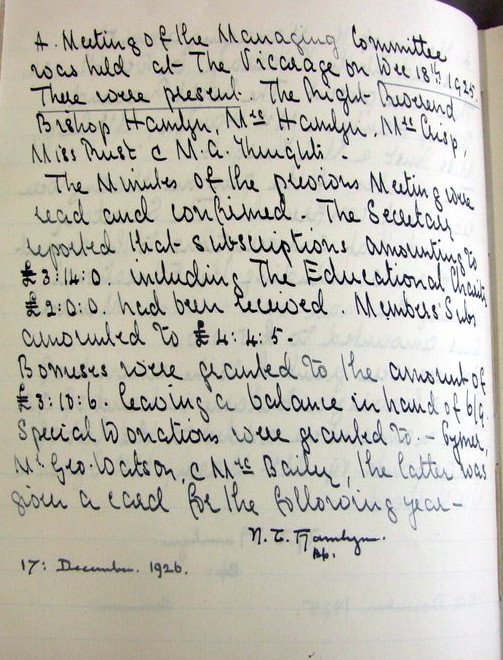 A. Meeting of the Managing Committee
was held at The Vicarage on Dec 18th 1925.
There were present The Right Reverend
Bishop Hamlyn, Mrs Hamlyn, Mrs Crisp,
Miss Trust & M.A. Knights -
The Minutes of the previous Meeting were
read and confirmed. The Secretary
reported that subscriptions amounting to
£3:14:0. including The Educational Charity
£2:0:0. had been received. Members' Subs
amounted to £4:4:5-
Bonuses were granted to the amount of
£3:10:6. leaving a balance in hand of 6/9.
Special Donations were granted to -
Mr Geo. Watson, & Mrs Bailey, the latter was
given a card for the following year -
N. T. Hamlyn.
Bp.
17: December. 1926.